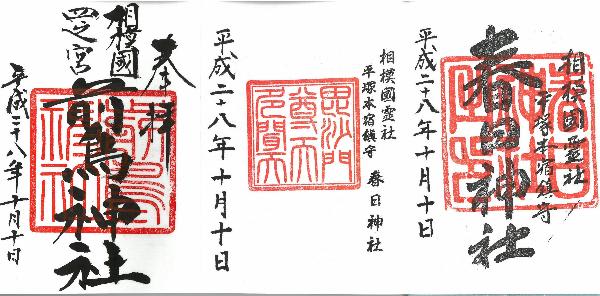 奉拝
相模國
四之宮
前鳥神社
平成二十八年十月十日
相模國霊社
平塚本宿鎮守
春日神社
毘沙門
尊天
多聞天
平成二十八年十月十日
相模國霊社
平塚本宿鎮守
春日神社
平成二十八年十月十日